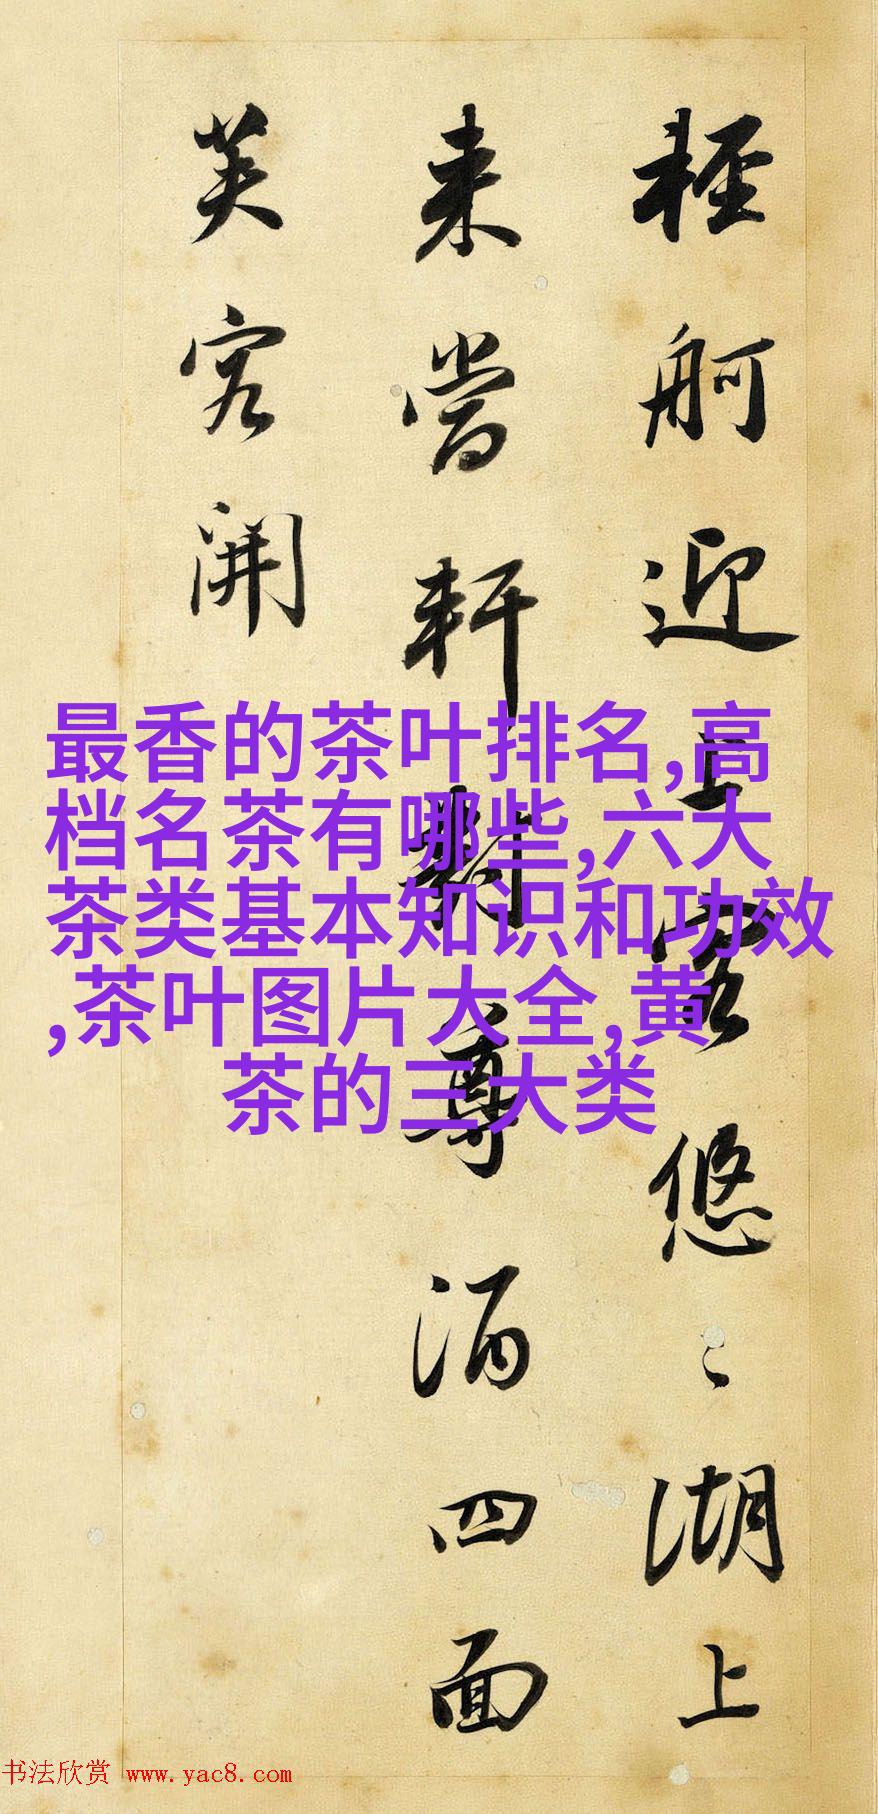 輕舸迎上客悠〻湖上
来當軒對尊酒四面
芙容開
最香的茶叶排名,高
档名茶有哪些,六大
茶类基本知识和功效
,茶叶图片大全,黄
茶的三大类
书法欣赏 www.yac8.com